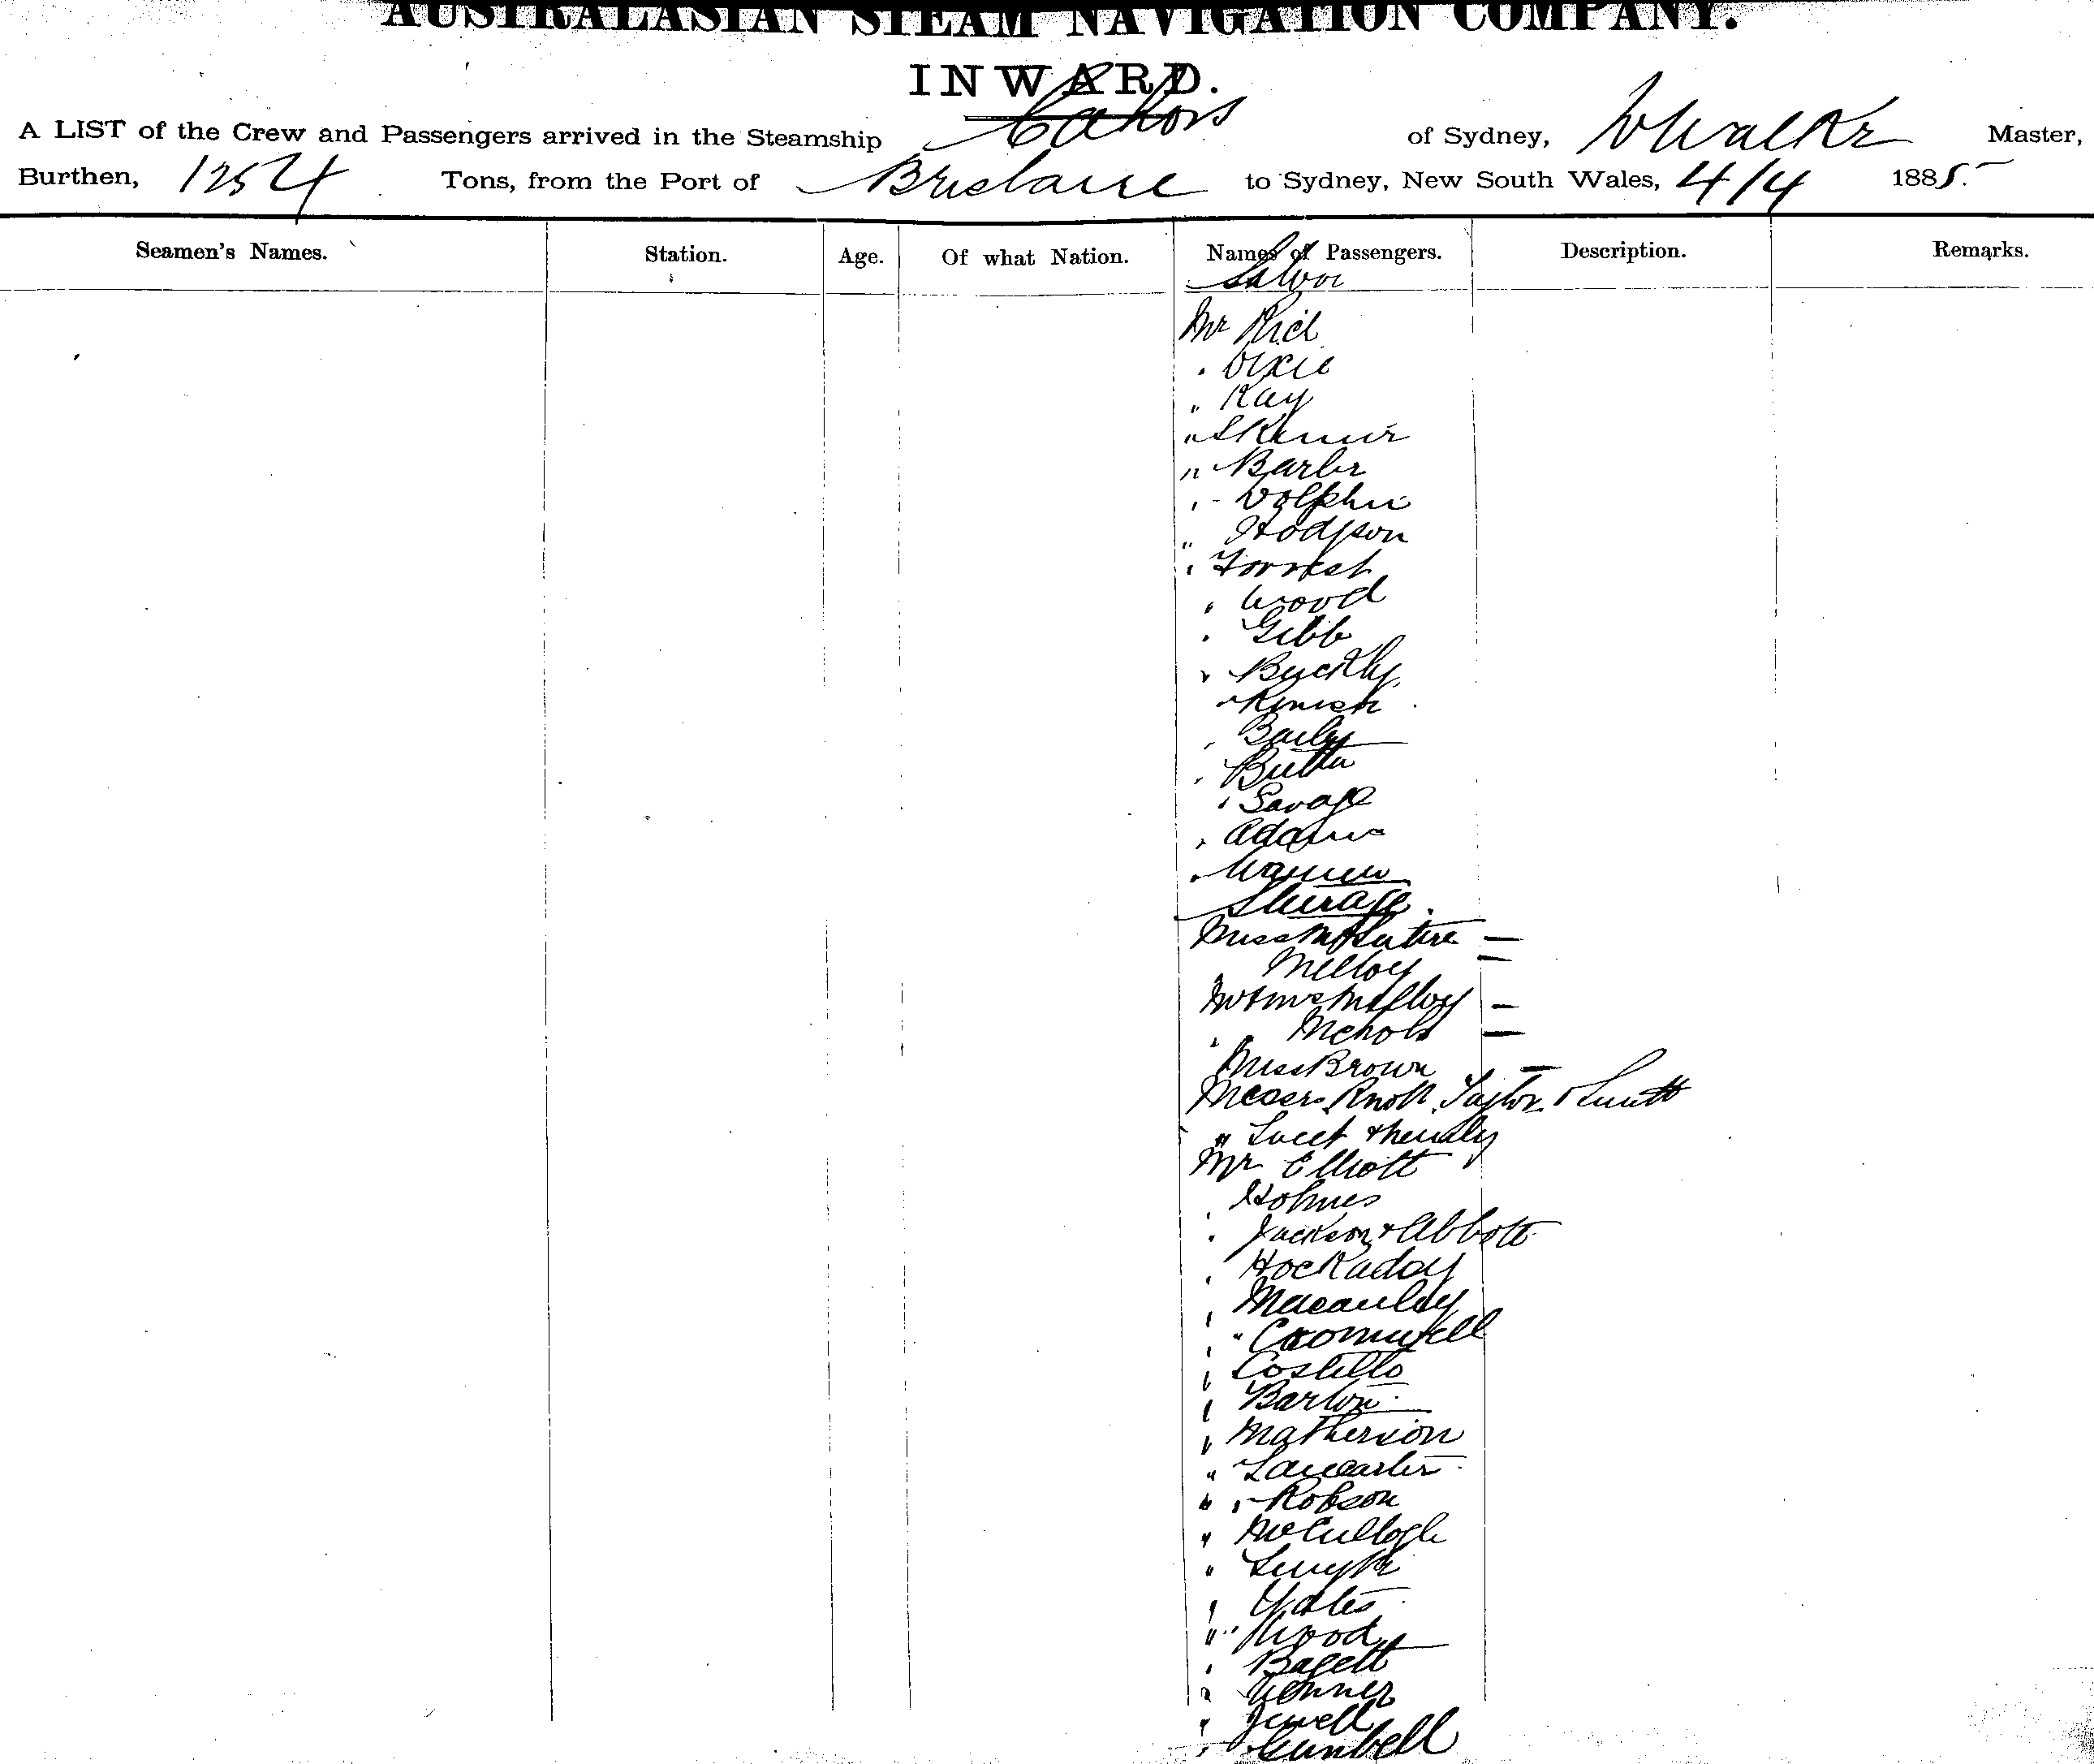 AUSTRALASIAN STEAM NAVIGATION COMPANY.
INWARD.
A LIST of the Crew and Passengers arrived in the Steamship Cahors of Sydney, Walker Master,
Burthen, 1254 Tons, from the Port of Brisbane to Sydney, New South Wales, 4/4 1885.
Seamen's Names. Station. Age. Of what Nation. Names of Passengers. Description. Remarks.
Saloon
Mr Rich
. Dixie
" Kay
" Skinner
" Barber
" Dolphin
" Hodgson
" Forrest
" Wood
" Gibb
" Buckley
" Kinish
" Baily
"
" Savage
" Adams
" Warren
Steerage.
Miss McIntire —
" Melloy —
Mr & Mrs Melloy —
" Nichols —
Miss Brown —
Messrs Knott Taylor & Smith
"
Mr Elliott
" Holmes
" Jackson & Abbott
" Hockaday
" Macaulay
" Cromwell
" Costello
" Barton
" Matherson
" Lancaster
" Robson
" McCullogh
" Smyth
" Yates
" Wood
" Bagett
" Venner
" Jewell
" Gunbell